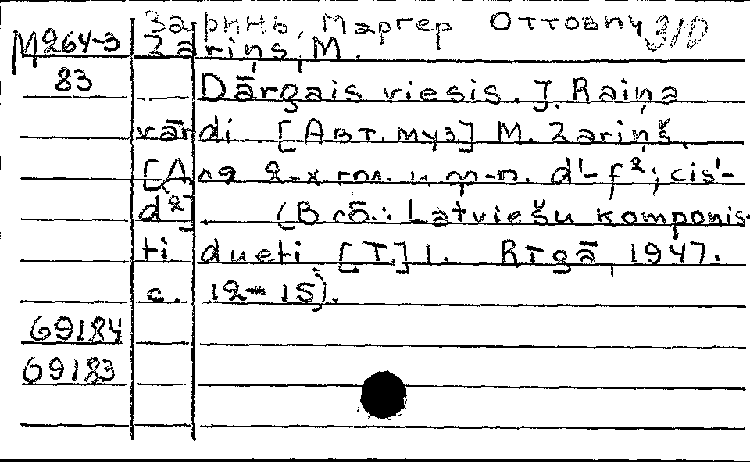 Заринь, Маргер Оттович 310
М264-3 Zariņš, M.
83 Dārgais viesis. J. Raiņa
vārdi [Авт. муз] M. Zariņš.
[Для 2-х гол. и ф-п. d'-f²; cis'-
d²] (В сб.: Latviešu komponis-
ti dueti [T.] 1. Rīgā, 1947.
с. 12-15).
69184
69183